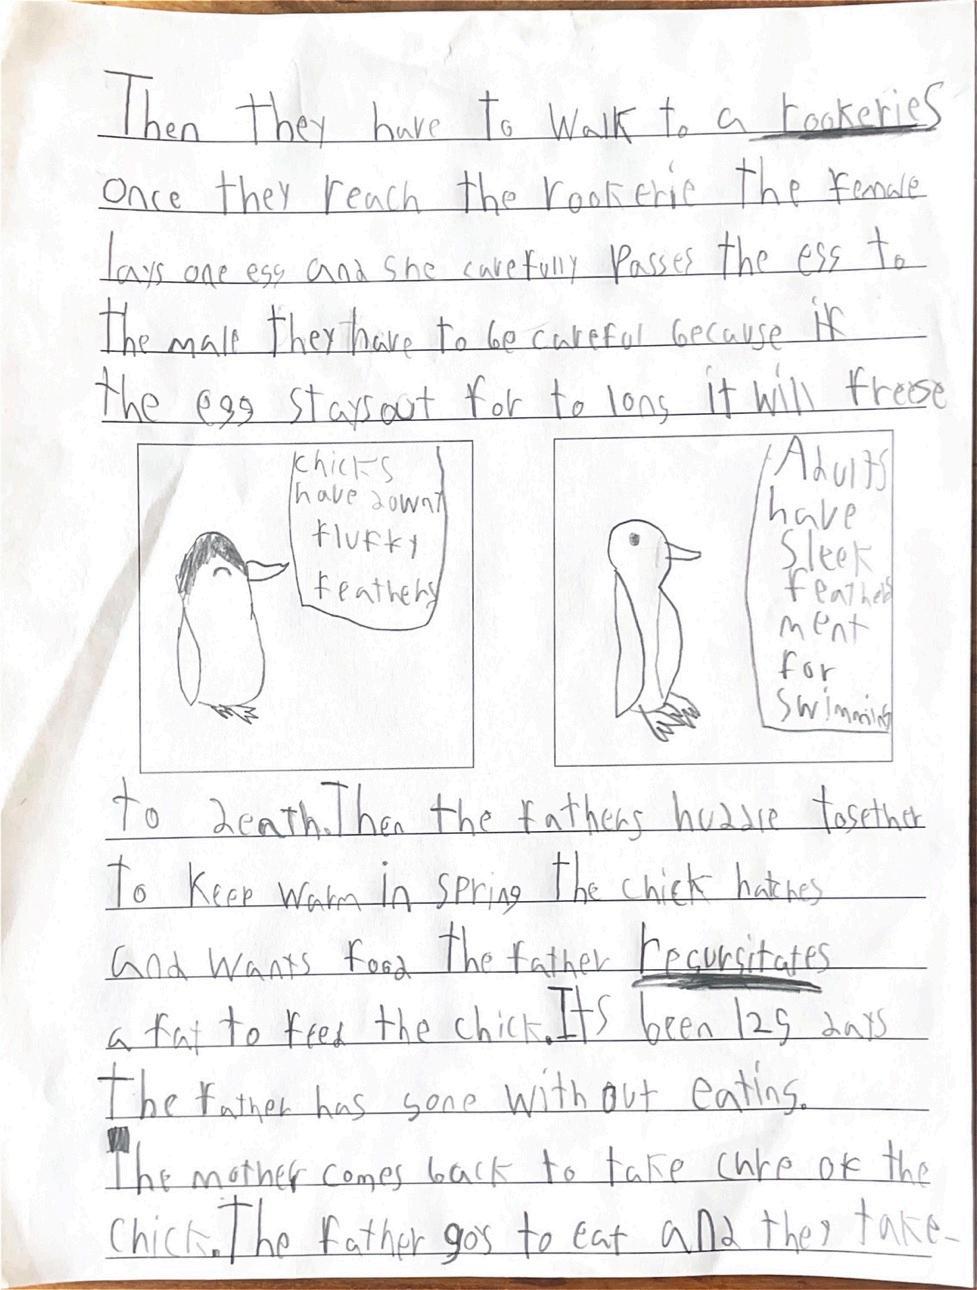 Then they have to walk to a rookeries
once they reach the rookerie the female
lays one egg and she carefully passes the egg to
the male they have to be careful because if
the egg stays out for to long it will freese
chicks
have downy
fluffy
feathers
Adults
have
sleek
feathers
ment
for
swimming
to death. Then the fathers huddle together
to keep warm in spring the chick hatches
and wants food the father regursitates
a fat to feed the chick. Its been 125 days
the father has gone with out eating.
The mother comes back to take chre of the
chick. The father gos to eat and they take-